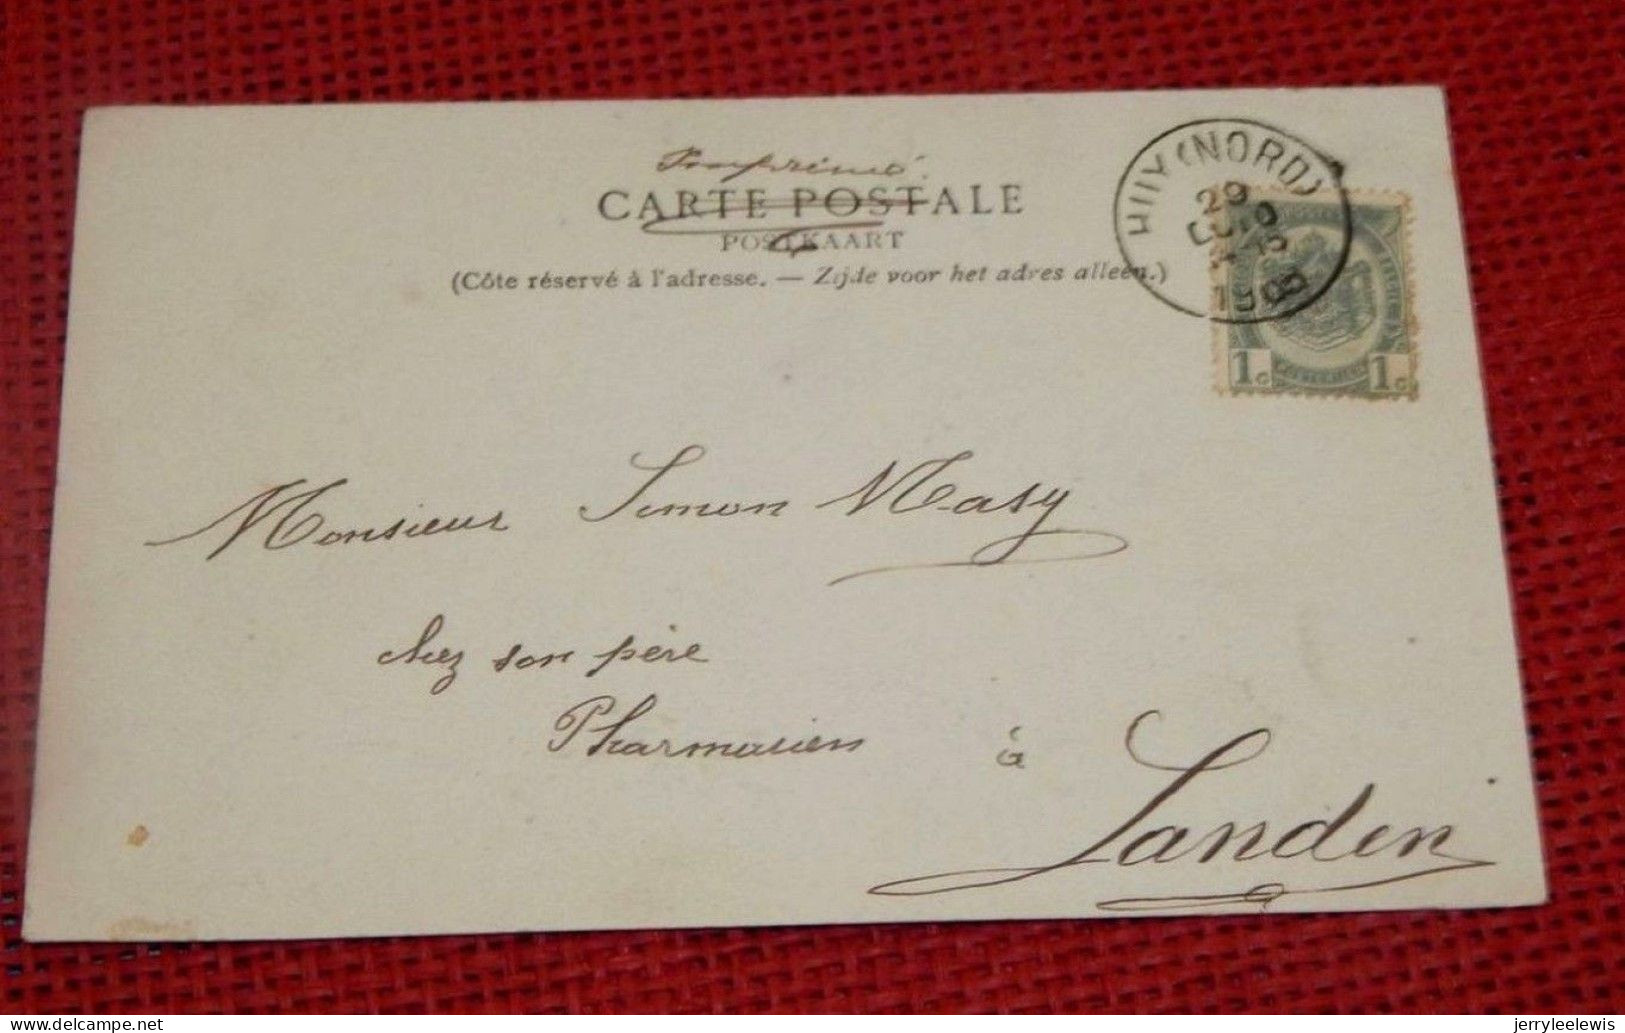 Imprimé.
CARTE POSTALE
POSTKAART
(Côte réservé à l'adresse. — Zijde voor het adres alleen.)
HUY (NORD)
29
1905
1 c 1 c
Monsieur Simon Masy
chez son père
Pharmacien à
Landen
jerryleelewis